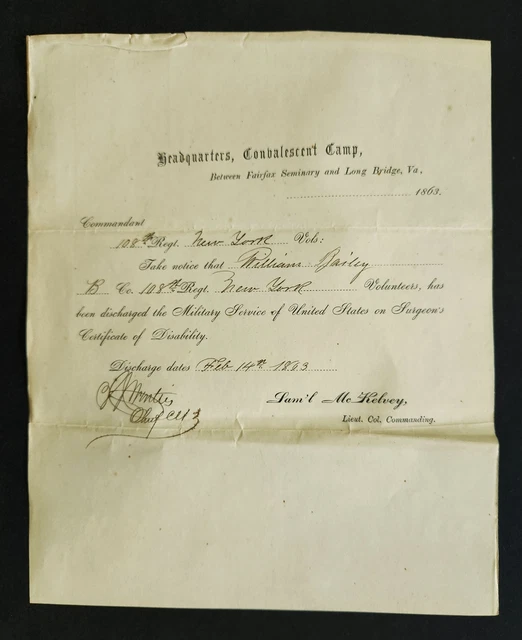 Headquarters, Convalescent Camp,
Between Fairfax Seminary and Long Bridge, Va,
1863.
Commandant
108th Regt. New York Vols:
Take notice that William Bailey
B Co. 108th Regt. New York Volunteers, has
been discharged the Military Service of United States on Surgeon's
Certificate of Disability.
Discharge dates Feb 14th 1863
Sam'l Mc Kelvey,
Chief Clk
Lieut. Col. Commanding.